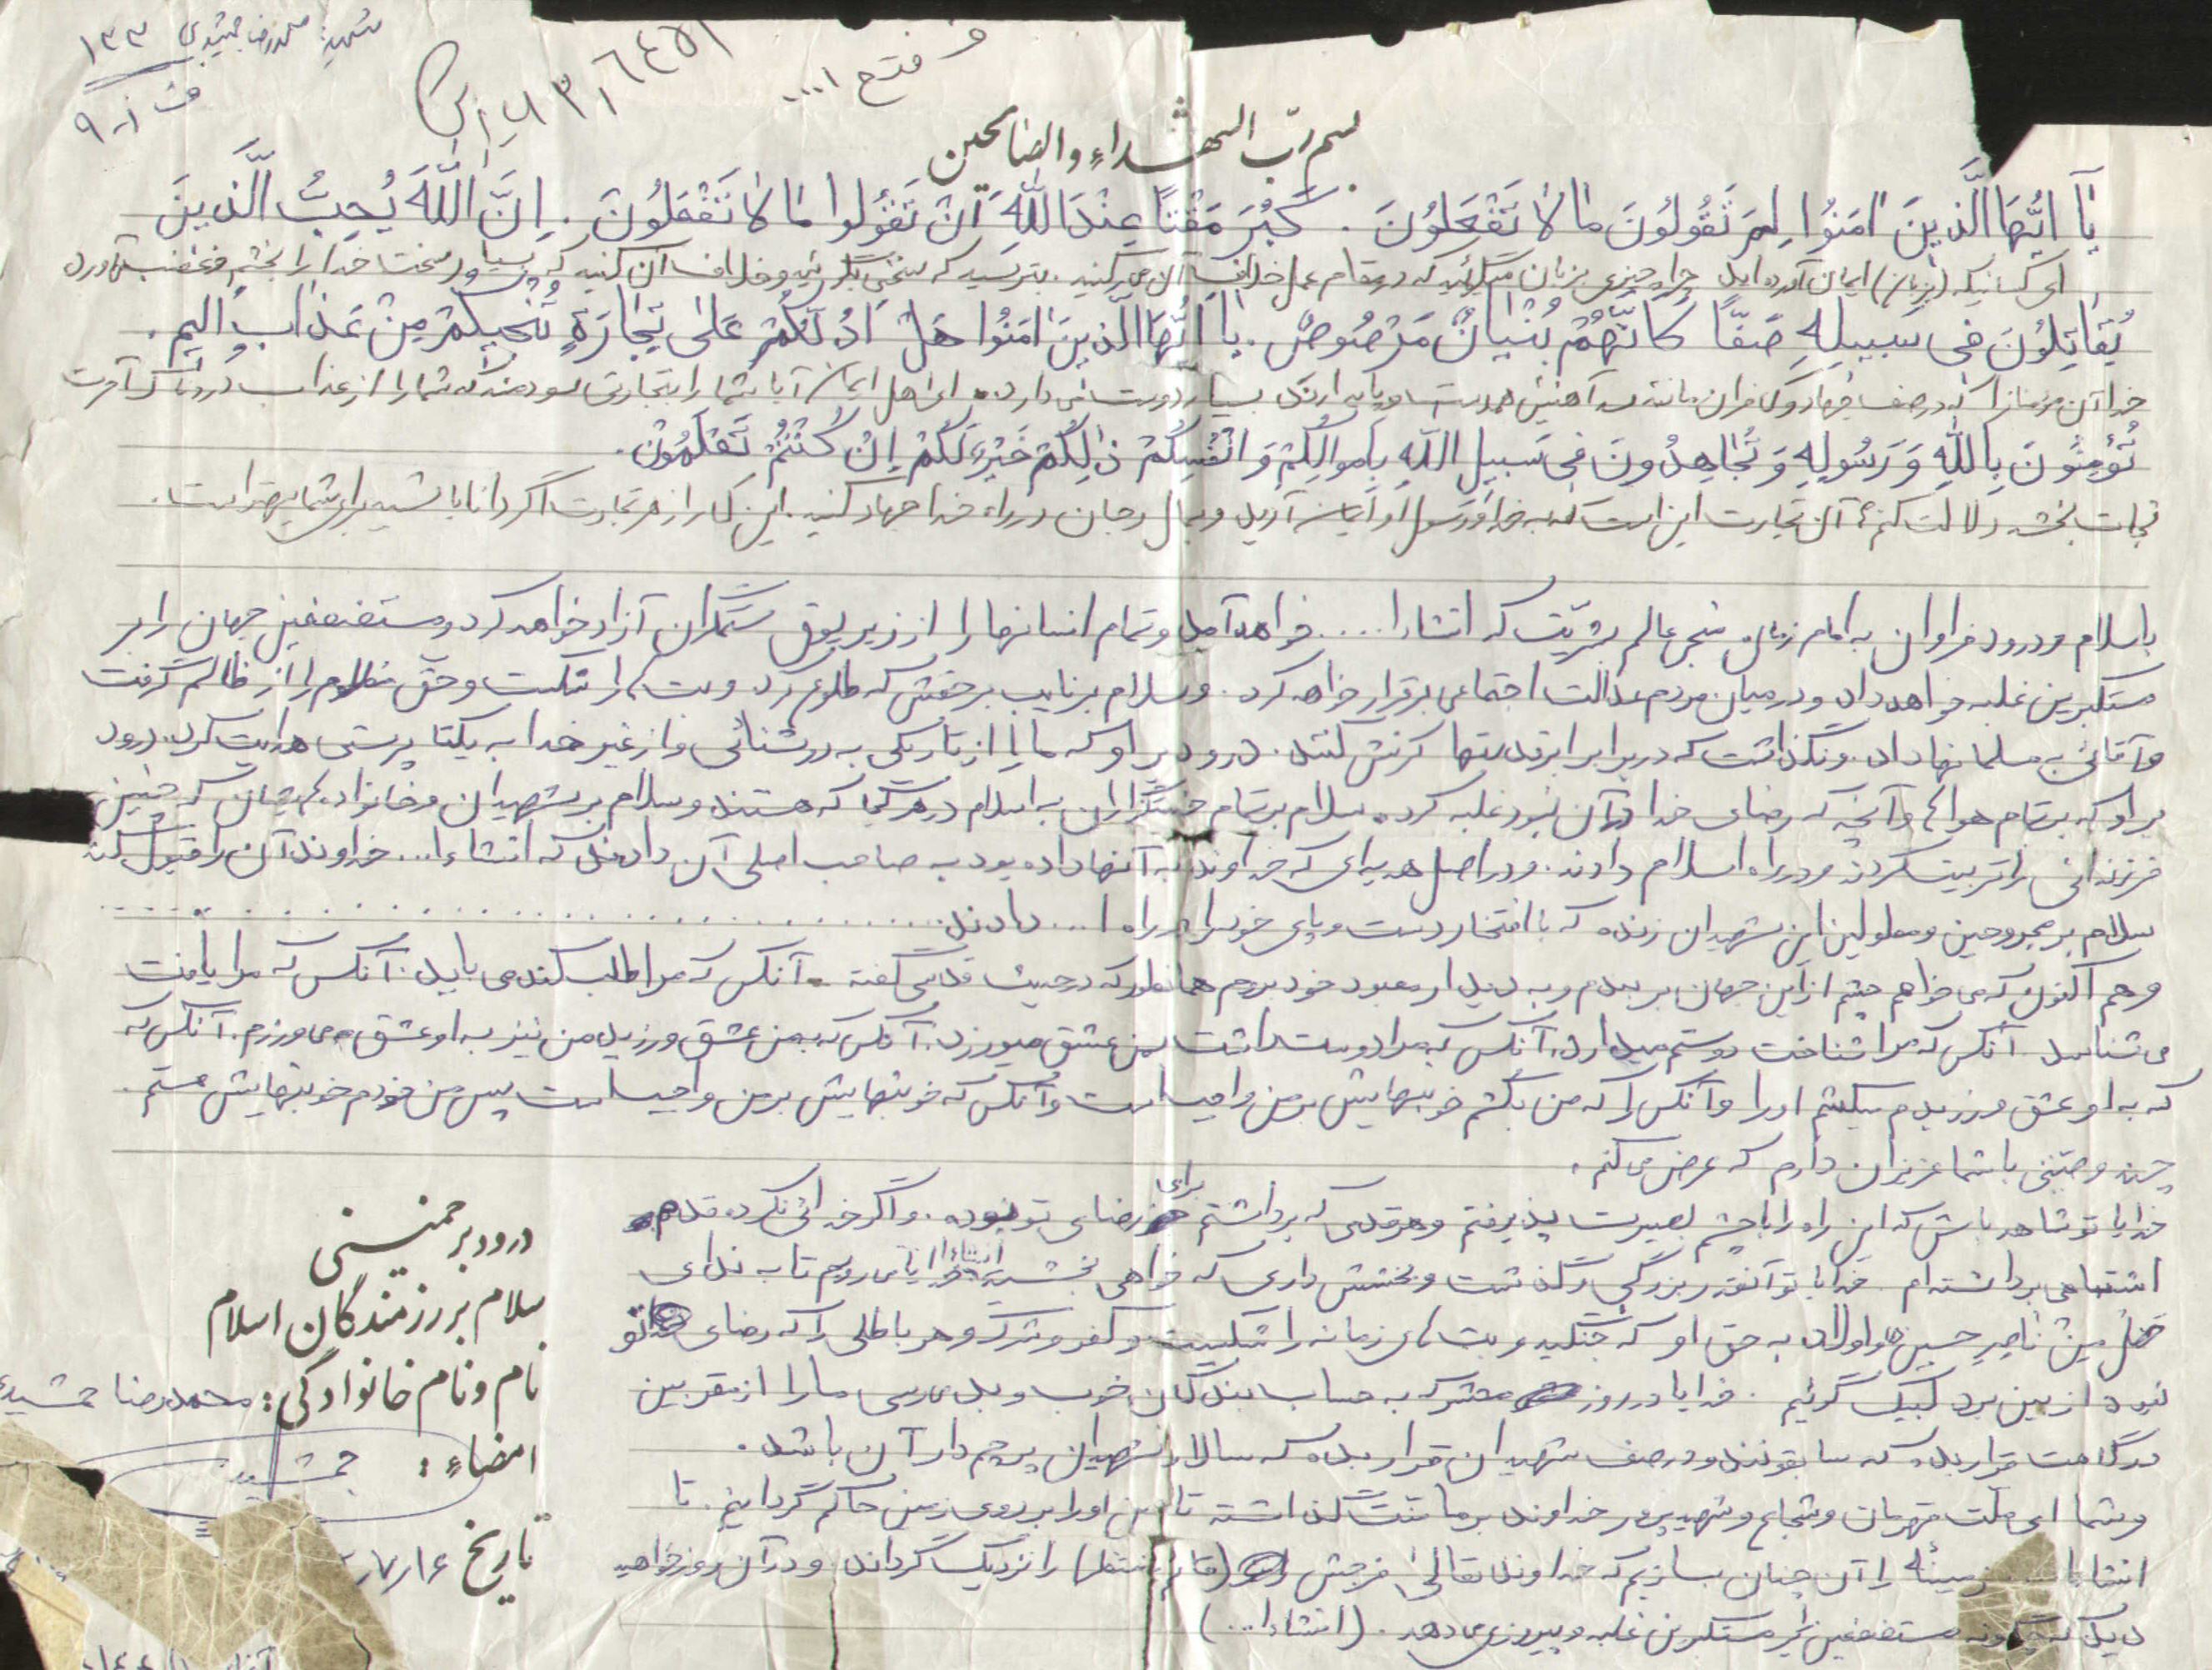 شهید: محمدرضا جمشیدی ۱۳۳
ف ۹۰۱
ف فتح ۱...
بسم ربّ الشهداءِ و الصّالحین
یٰا اَیُّهَا الَّذینَ امَنُوا لِمَ تَقُولُونَ مٰا لٰا تَفْعَلُونَ . کَبُرَ مَقْتاً عِنْدَ اللّٰهِ اَنْ تَقُولُوا مٰا لٰا تَفْعَلُونَ . اِنَّ اللّٰهَ یُحِبُّ الَّذینَ
ای کسانیکه (بزبان) ایمان آورده‌اید چرا چیزی بزبان میگوئید که در مقام عمل خلاف آن می‌کنید . بترسید که سخنی بگوئید و خلاف آن کنید که بسیار سخت خدا را بخشم و غضب می‌آورد
یُقٰاتِلُونَ فی سَبیلِهِ صَفّاً کَاَنَّهُمْ بُنْیٰانٌ مَرْصُوصٌ . یٰا اَیُّهَا الَّذینَ اٰمَنُوا هَلْ اَدُلُّکُمْ عَلیٰ تِجٰارَةٍ تُنْجیکُمْ مِنْ عَذٰابٍ اَلیم .
خدا آن مؤمنان را که در صف جهاد با کافران مانند سد آهنین همدست و پایدارند بسیار دوست می‌دارد. ای اهل ایمان آیا شما را بتجارتی سودمند که شما را از عذاب دردناک آخرت
تُؤْمِنُونَ بِاللّٰهِ وَ رَسُولِهِ وَ تُجٰاهِدُونَ فی سَبیلِ اللّٰهِ بِاَموالِکُمْ وَ اَنْفُسِکُمْ ذٰلِکُمْ خَیْرٌ لَکُمْ اِنْ کُنْتُمْ تَعْلَمُونْ .
نجات بخشد دلالت کنم؟ آن تجارت این است که به خدا و رسول او ایمان آرید و بمال و جان در راه خدا جهاد کنید . این کار از هر تجارت اگر دانا باشید برای شما بهتر است .
با سلام و درود فراوان به امام زمان منجی عالم بشریّت که انشاءا.... خواهد آمد و تمام انسانها را از زیر یوق ستمگران آزاد خواهد کرد و مستضعفین جهان را بر
مستکبرین غلبه خواهد داد و در میان مردم عدالت اجتماعی برقرار خواهد کرد . و سلام بر نایب برحقش که طلوع کرد و بت‌ها را شکست و حق مظلوم را از ظالم گرفت
و آقائی به مسلمانها داد . و نگذاشت که در برابر ابرقدرتها کرنش کنند . درود بر او که ما را از تاریکی به روشنائی و از غیر خدا به یکتا پرستی هدایت کرد . درود
بر او که بر تمام هواها و آنچه که رضای خدا در آن نبود غلبه کرد . سلام بر تمام خدمتگزاران به اسلام در هر کجا که هستند و سلام بر شهیدان و خانواده‌هایشان که چنین
فرزندانی را تربیت کردند و در راه اسلام دادند . و در اصل هدیه‌ای که خداوند به آنها داده بود به صاحب اصلی آن دادند که انشاءا... خداوند آن را قبول کند
سلام بر مجروحین و معلولین این شهیدان زنده که با افتخار دست و پای خود را در راه ا... دادند ..........
و هم اکنون که می‌خواهم چشم از این جهان بر بندم و به دیدار معبود خود بروم همانطور که در حدیث قدسی گفته . آنکس که مرا طلب کند می یابد . آنکس که مرا یافت
می شناسد . آنکس که مرا شناخت دوستم میدارد . آنکس که مرا دوست داشت بمن عشق میورزد . آنکس که بمن عشق ورزید من نیز به او عشق می‌ورزم . آنکس که
که به او عشق ورزیدم میکشم او را و آنکس را که من بکشم خونبهایش بر من واجب است و آنکس که خونبهایش بر من واجب است پس من خودم خونبهایش هستم .
چند وصیّتی با شما عزیزان دارم که عرض می کنم .
خدایا تو شاهد باش که این راه را با چشم بصیرت پذیرفتم و هر قدمی که برداشتم برای رضای تو بوده . و اگر خدائی نکرده قدم
اشتباهی برداشته ام . خدایا تو آنقدر بزرگی و گذشت و بخشش داری که خواهی بخشید انشاءا خدایا می‌رویم تا به ندای
هَلْ مِنْ ناصِر حسین ها و اولاد به حق او که جنگید و بت‌های زمانه را شکست و کفر و شرک و هر باطلی را که رضای تو
نبود از بین برد لبیک گوئیم . خدایا در روز محشر که به حساب بندگان خوب و بد می رسی ما را از مقربین
درگاهت قرار بده که سابقونند و در صف شهیدان قرار بده که سالار شهیدان پرچم دار آن باشد .
و شما ای ملت قهرمان و شجاع و شهید پرور خداوند بر ما منّت گذاشته تا دین او را بر روی زمین حاکم گردانیم . تا
انشاءا زمینه را آن چنان بسازیم که خداوند تعالیٰ فرجش (قائم منتظر) را نزدیک گرداند و در آن روز خواهید
دید که چگونه مستضعفین بر مستکبرین غلبه و پیروزی می‌دهد . (انشاءا...)
درود بر خمینی
سلام بر رزمندگان اسلام
نام و نام خانوادگی: محمدرضا جمشیدی
امضاءِ: جمشیدی
تاریخ ۷/۱۶